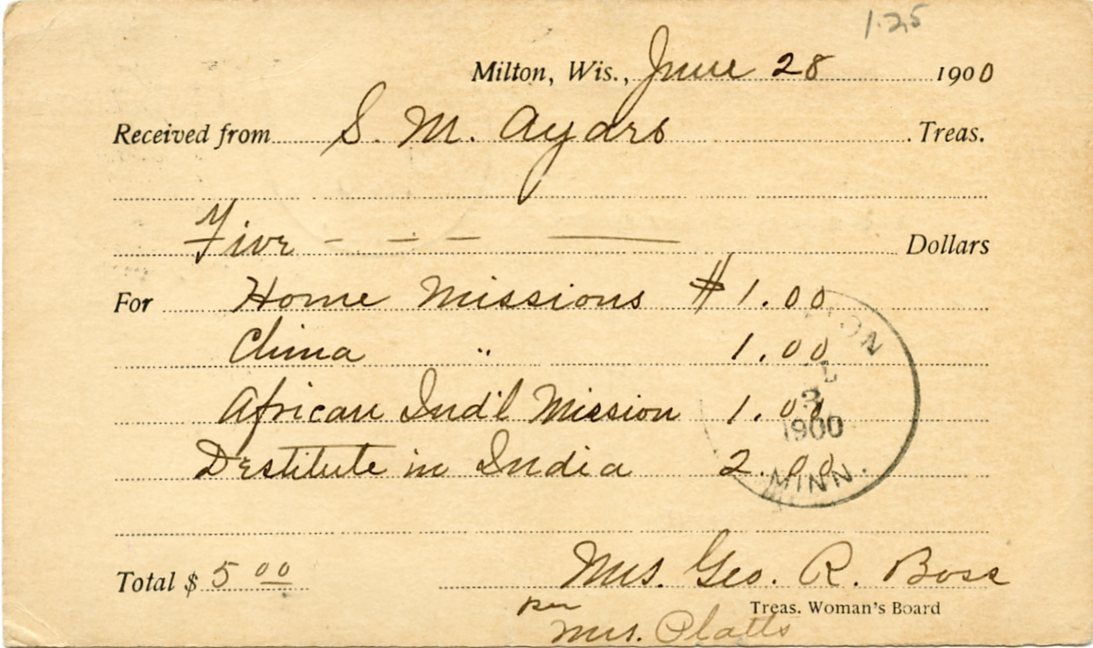 1.25
Milton, Wis., June 28 1900
Received from S. M. Ayars Treas.
Five Dollars
For Home Missions $1.00
China " 1.00
African Ind'l Mission 1.00
Destitute in India 2.00
3
1900
MINN.
Total $ 5 00 Mrs. Geo. R. Boss
Treas. Woman's Board
per
Mrs. Platts